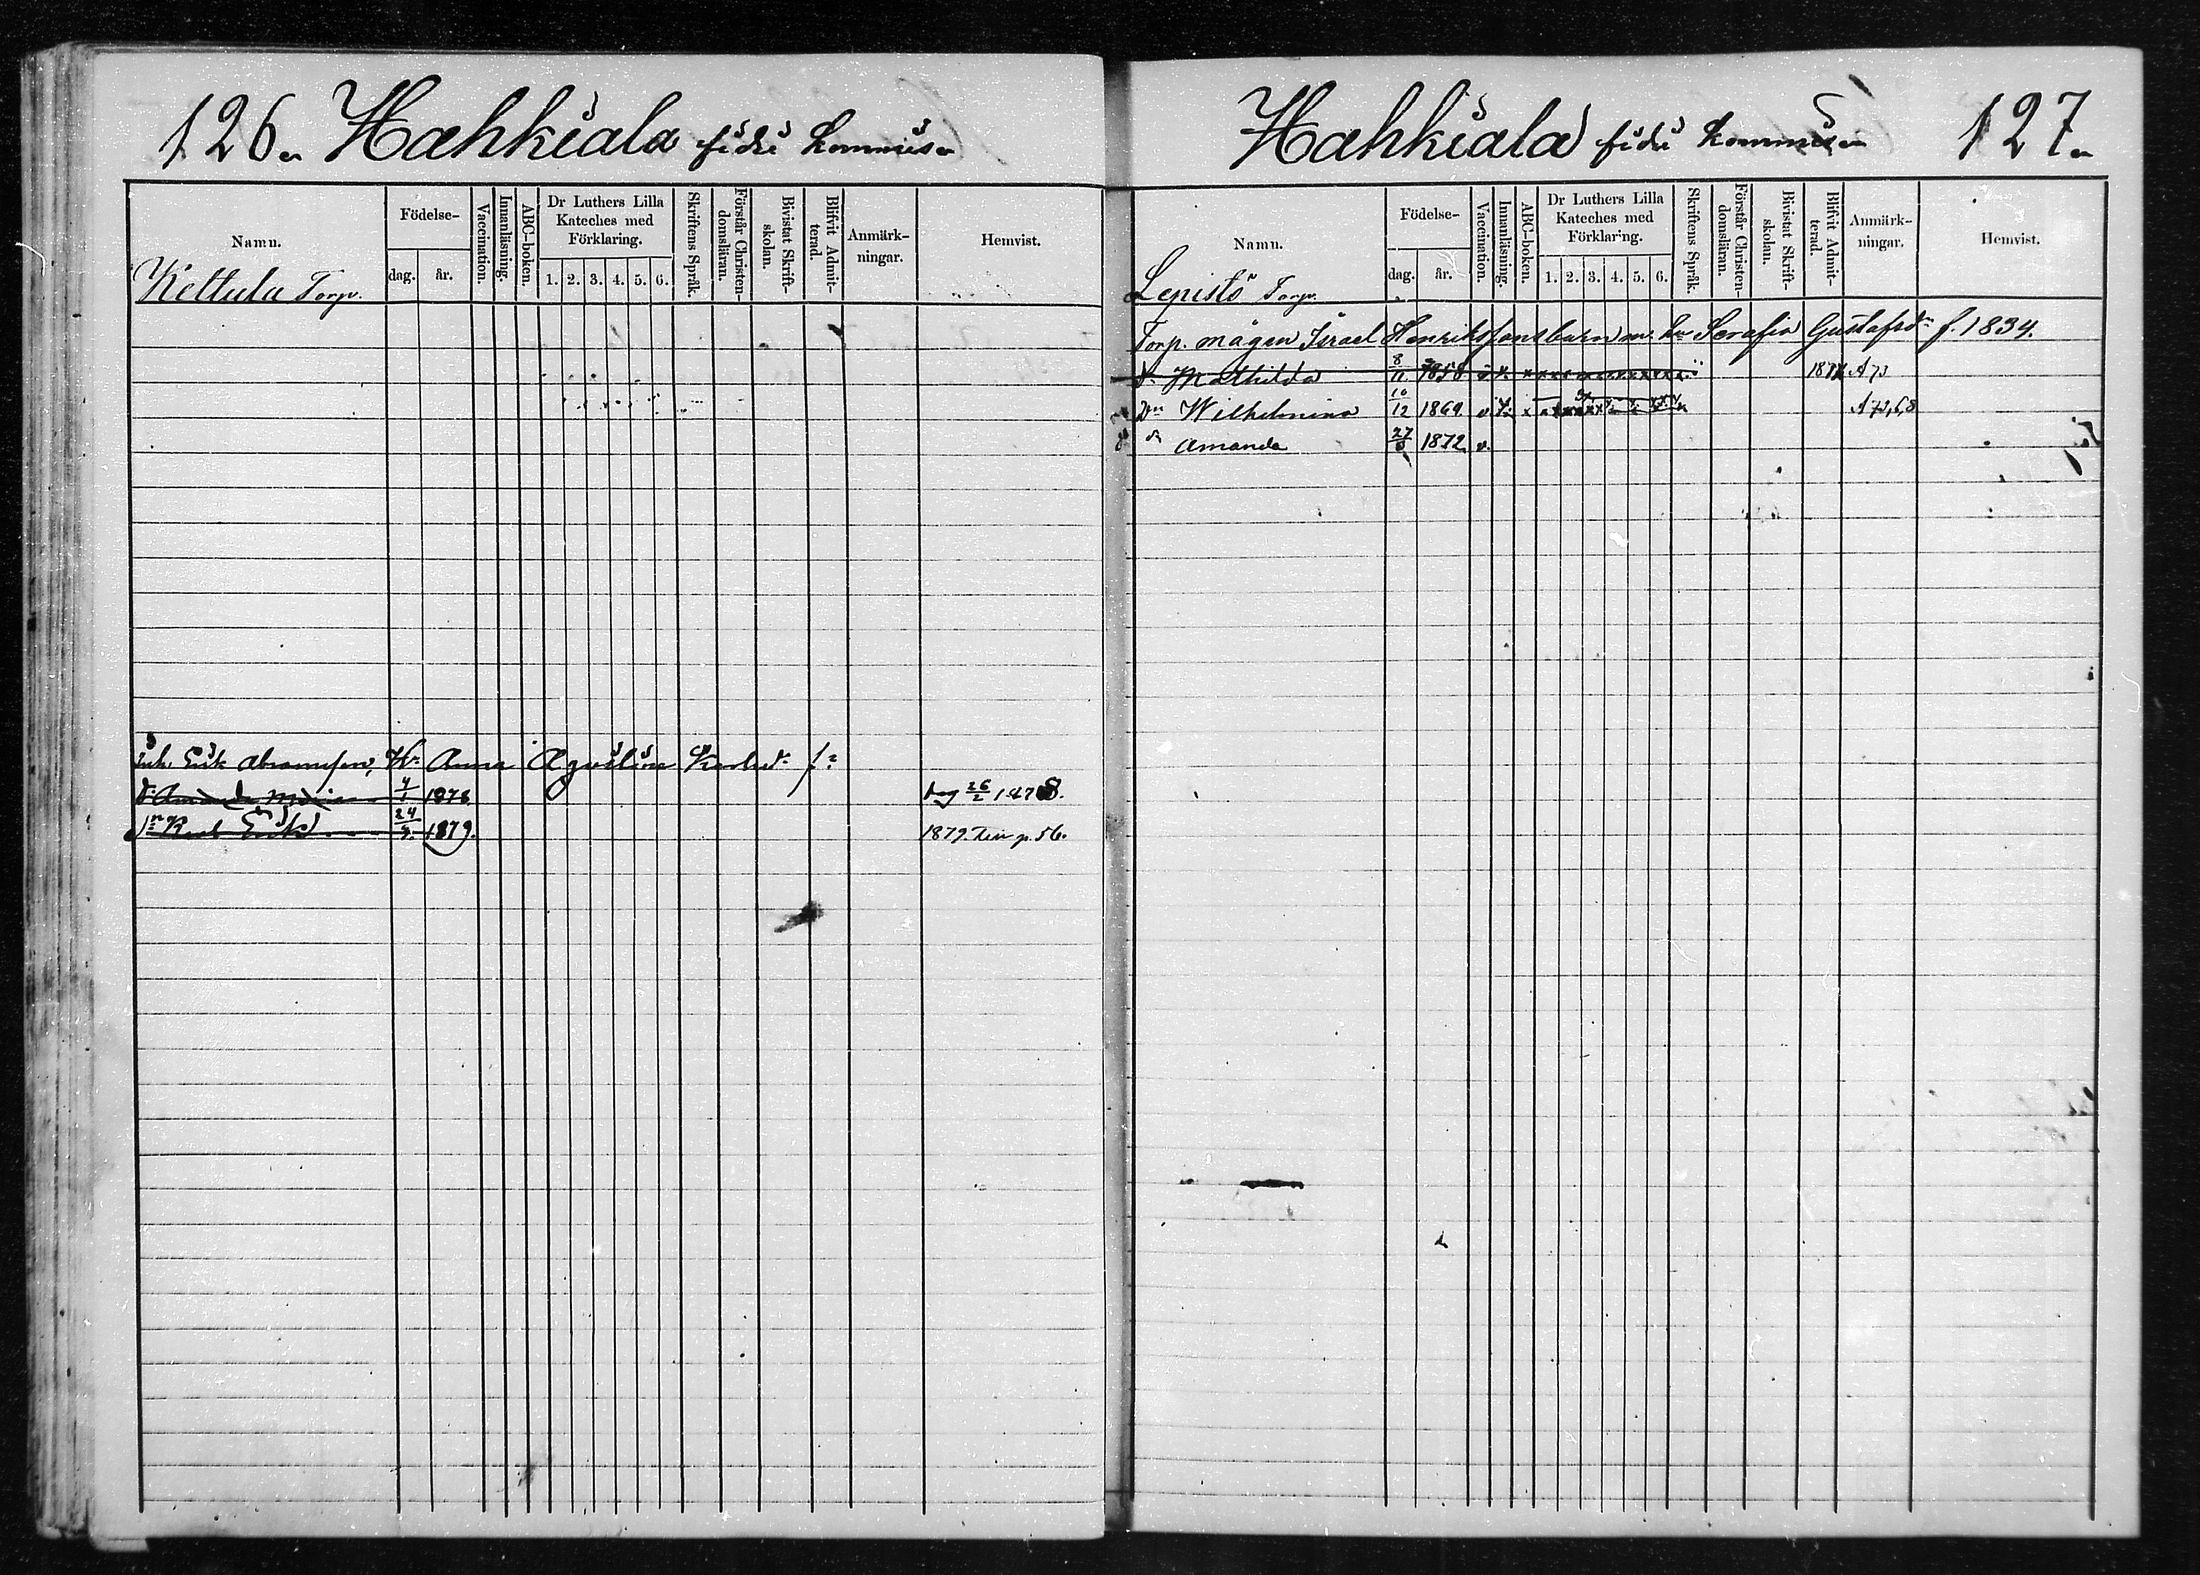 126. Hahkiala fidei Kommiss.
Namn.
Födelse-
dag.
år.
Vaccination.
Innanläsning.
ABC-boken.
Dr Luthers Lilla
Kateches med
Förklaring.
1. 2. 3. 4. 5. 6.
Skriftens Språk.
Förstår Christen-
domsläran.
Bivistat Skrift-
skolan.
Blifvit Admit-
terad.
Anmärk-
ningar.
Hemvist.
Kettula Torp.
Inh. Erik Abramsson, Hu Anna Agustina Karlsdr f.
dr Amanda Maria 1/1 1878 26/2 1878.
sn Karl Erik 24/9. 1879. 1879. p. 56.
Hahkiala fidei Kommiss. 127.
Namn.
Födelse-
dag.
år.
Vaccination.
Innanläsning.
ABC-boken.
Dr Luthers Lilla
Kateches med
Förklaring.
1. 2. 3. 4. 5. 6.
Skriftens Språk.
Förstår Christen-
domsläran.
Bivistat Skrift-
skolan.
Blifvit Admit-
terad.
Anmärk-
ningar.
Hemvist.
Lepistö Torp.
Torp. mågen Israel Henrikssons barn m. hu Serafia Gustafsdr f. 1834.
dr Mathilda 8/11 1858 A73
Dr Wilhelmina 10/12 1869 v. x
dr Amanda 1872. v.